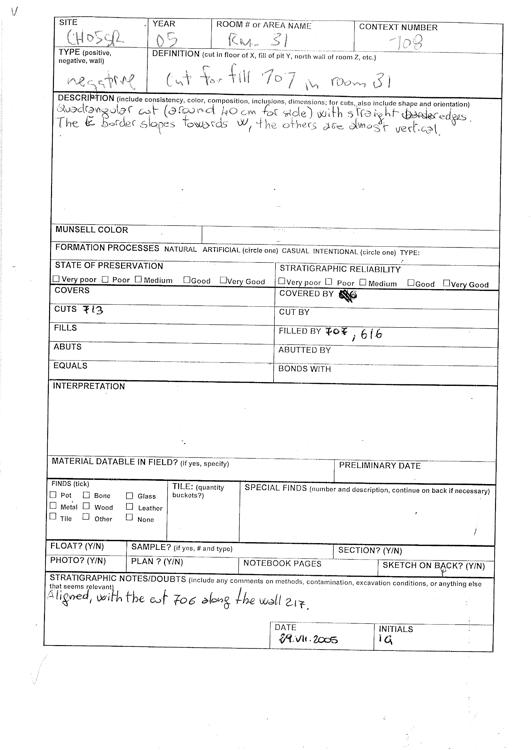 V
SITE YEAR ROOM # or AREA NAME CONTEXT NUMBER
CHOSGR 05 Rm. 31 708
TYPE (positive, negative, wall) DEFINITION (cut in floor of X, fill of pit Y, north wall of room Z, etc.)
negative Cut for fill 707 in room 31
DESCRIPTION (include consistency, color, composition, inclusions, dimensions; for cuts, also include shape and orientation)
Quadrangular cut (around 40 cm for side) with straight edges.
The E border slopes towards W, the others are almost vertical.
MUNSELL COLOR
FORMATION PROCESSES NATURAL ARTIFICIAL (circle one) CASUAL INTENTIONAL (circle one) TYPE:
STATE OF PRESERVATION STRATIGRAPHIC RELIABILITY
Very poor Poor Medium Good Very Good Very poor Poor Medium Good Very Good
COVERS COVERED BY
CUTS 713 CUT BY
FILLS FILLED BY 707, 616
ABUTS ABUTTED BY
EQUALS BONDS WITH
INTERPRETATION
MATERIAL DATABLE IN FIELD? (If yes, specify) PRELIMINARY DATE
FINDS (tick) TILE: (quantity buckets?) SPECIAL FINDS (number and description, continue on back if necessary)
Pot Bone Glass
Metal Wood Leather
Tile Other None
FLOAT? (Y/N) SAMPLE? (if yes, # and type) SECTION? (Y/N)
PHOTO? (Y/N) PLAN ? (Y/N) NOTEBOOK PAGES SKETCH ON BACK? (Y/N)
STRATIGRAPHIC NOTES/DOUBTS (include any comments on methods, contamination, excavation conditions, or anything else
that seems relevant)
Aligned, with the cut 706 along the wall 217.
DATE INITIALS
29.VII.2005 IG